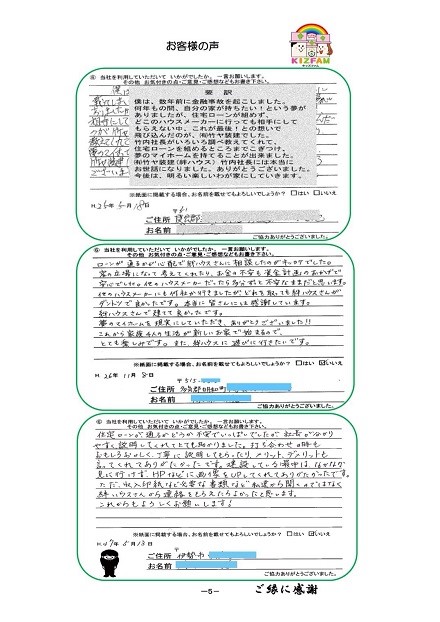 お客様の声
KIZFAM
⑥ 当社を利用していただいて いかがでしたか。一言お願いします。
その他 お気付きの点・ご意見・ご感想などもお書き下さい。
要 訳
僕は、数年前に金融事故を起こしました。
何年もの間、自分の家が持ちたい！という夢が
ありましたが、住宅ローンが組めず、
どこのハウスメーカーに行っても相手にして
もらえない中、これが最後！との想いで
飛び込んだのが、㈲竹ヤ装建でした。
竹内社長がいろいろ調べ教えてくれて、
住宅ローンを組めるところまでこぎつけ、
夢のマイホームを持てることが出来ました。
㈲竹ヤ装建（絆ハウス）竹内社長には本当に
お世話になりました。ありがとうございました。
今後は、明るい楽しいわが家にしていきます。
※紙面に掲載する場合、お名前を載せてもよろしいでしょうか？ □はい ☑いいえ
H.26年5月18日
ご住所
お名前
ご協力ありがとうございました。
⑥ 当社を利用していただいて いかがでしたか。一言お願いします。
その他 お気付きの点・ご意見・ご感想などもお書き下さい。
ローンが通るかが心配で絆ハウスさんに相談したのがキッカケでした。
客の立場になって考えてくれたり、お金の不安も資金計画のおかげで
安心でした。他のハウスメーカーだったら必ずと不安なままだと思います。
他のハウスメーカーにも何社か行きましたが、どれを取っても絆ハウスさんが
ダントツで良かったです。本当に皆さんには感謝しています。
絆ハウスさんで建てて良かったです。
夢のマイホームを現実にしていただき、ありがとうございました!!
これから家族4人の生活が新しいお家で始まるので、
とても楽しみです。また、絆ハウスに遊びに行きたいです。
※紙面に掲載する場合、お名前を載せてもよろしいでしょうか？ □はい ☑いいえ
H.26年11月8日
〒515-
ご住所 多気郡明和町
お名前
ご協力ありがとうございました。
⑥ 当社を利用していただいて いかがでしたか。一言お願いします。
その他 お気付きの点・ご意見・ご感想などもお書き下さい。
住宅ローンが通るかどうか不安でいっぱいでしたが、社長が分かり
やすく説明してくれてとても助かりました。打ち合わせの時も
おもしろおかしく、丁寧に説明してもらったり、メリット、デメリットも
言ってくれてありがたかったです。建設している最中は、なかなか
見に行けず、HPなどに画像をUPしてくれてありがたかったです。
ただ、収入印紙など必要な書類など私達から聞くのではなく
絆ハウスさんから連絡をもらえたらよかったと思います。
これからもよろしくお願いします！
※紙面に掲載する場合、お名前を載せてもよろしいでしょうか？ □はい ☑いいえ
H.27年5月13日
ご住所 伊勢市
お名前
ご協力ありがとうございました。
－5－
ご縁に感謝